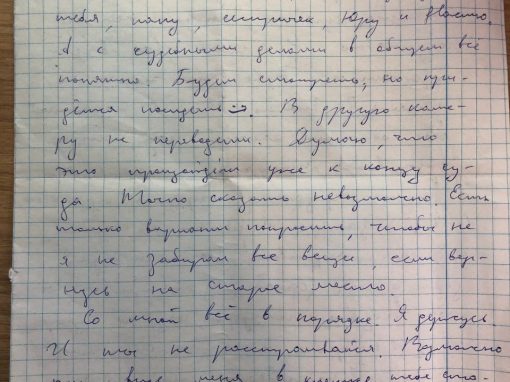 тебя, папу, сестричек, Юру и Настю.
А с судебными делами в общем всё
понятно. Будем смотреть, но при-
дётся посидеть. В другую каме-
ру не перевели. Думаю, что
это произойдёт уже к концу су-
да. Точно сказать невозможно. Есть
только вариант попросить, чтобы не
я не забирал все вещи, если вер-
нусь на старое место.
Со мной всё в порядке. Я держусь.
И ты не расстраивайся. Возможно
меня в тебе